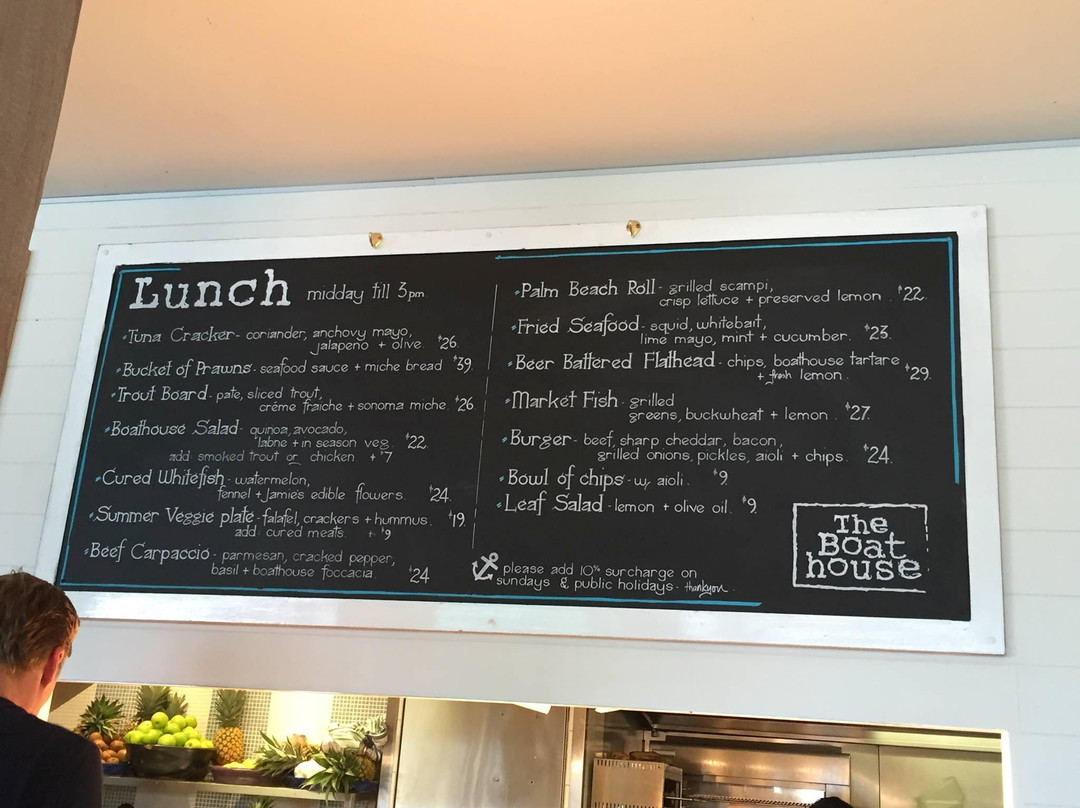 Lunch midday till 3pm
•Tuna Cracker - coriander, anchovy mayo,
jalapeno + olive. $26.
•Bucket of Prawns - seafood sauce + miche bread $39.
•Trout Board - pate, sliced trout,
créme fraiche + sonoma miche. $26
•Boathouse Salad - quinoa, avocado,
labne + in season veg. $22.
add smoked trout or chicken. + $7
•Cured Whitefish - watermelon,
fennel + Jamie's edible flowers. $24.
•Summer Veggie plate - falafel, crackers + hummus. $19.
add cured meats. + $9
•Beef Carpaccio - parmesan, cracked pepper,
basil + boathouse foccacia. $24
•Palm Beach Roll - grilled scampi,
crisp lettuce + preserved lemon. $22.
•Fried Seafood - squid, whitebait,
lime mayo, mint + cucumber. $23.
•Beer Battered Flathead - chips, boathouse tartare
+ fresh lemon. $29.
•Market Fish - grilled
greens, buckwheat + lemon. $27.
•Burger - beef, sharp cheddar, bacon,
grilled onions, pickles, aioli + chips. $24.
•Bowl of chips - w/ aioli. $9
•Leaf Salad - lemon + olive oil. $9.
please add 10% surcharge on
sundays & public holidays - thankyou.
The
Boat
house